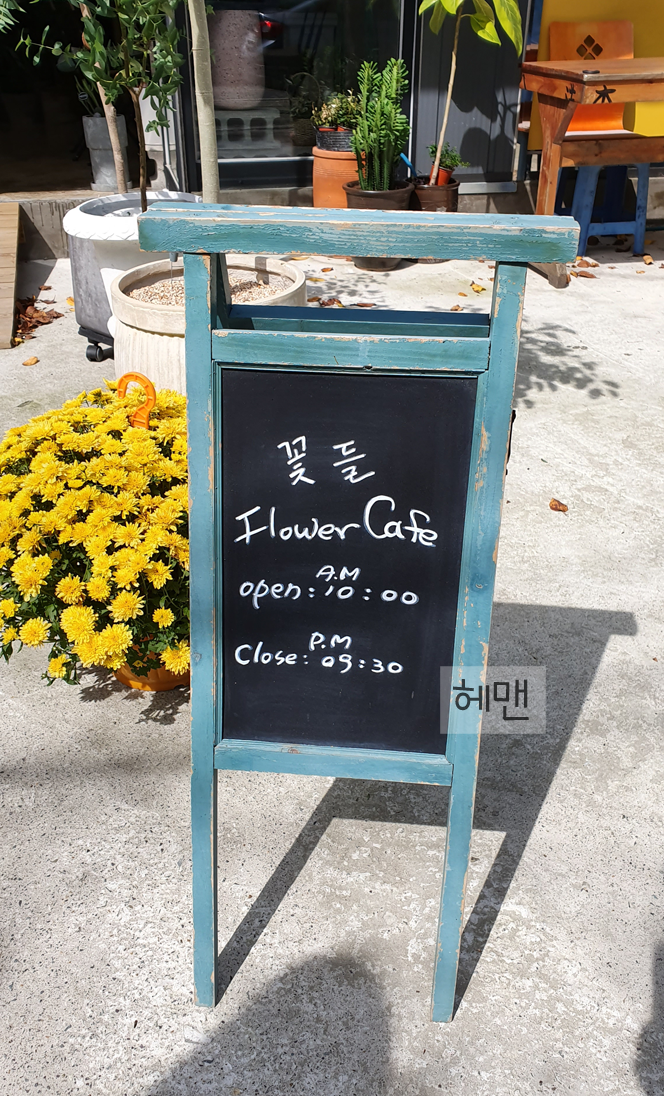 꽃들
Flower Cafe
A.M
open: 10:00
P.M
Close: 09:30
헤맨